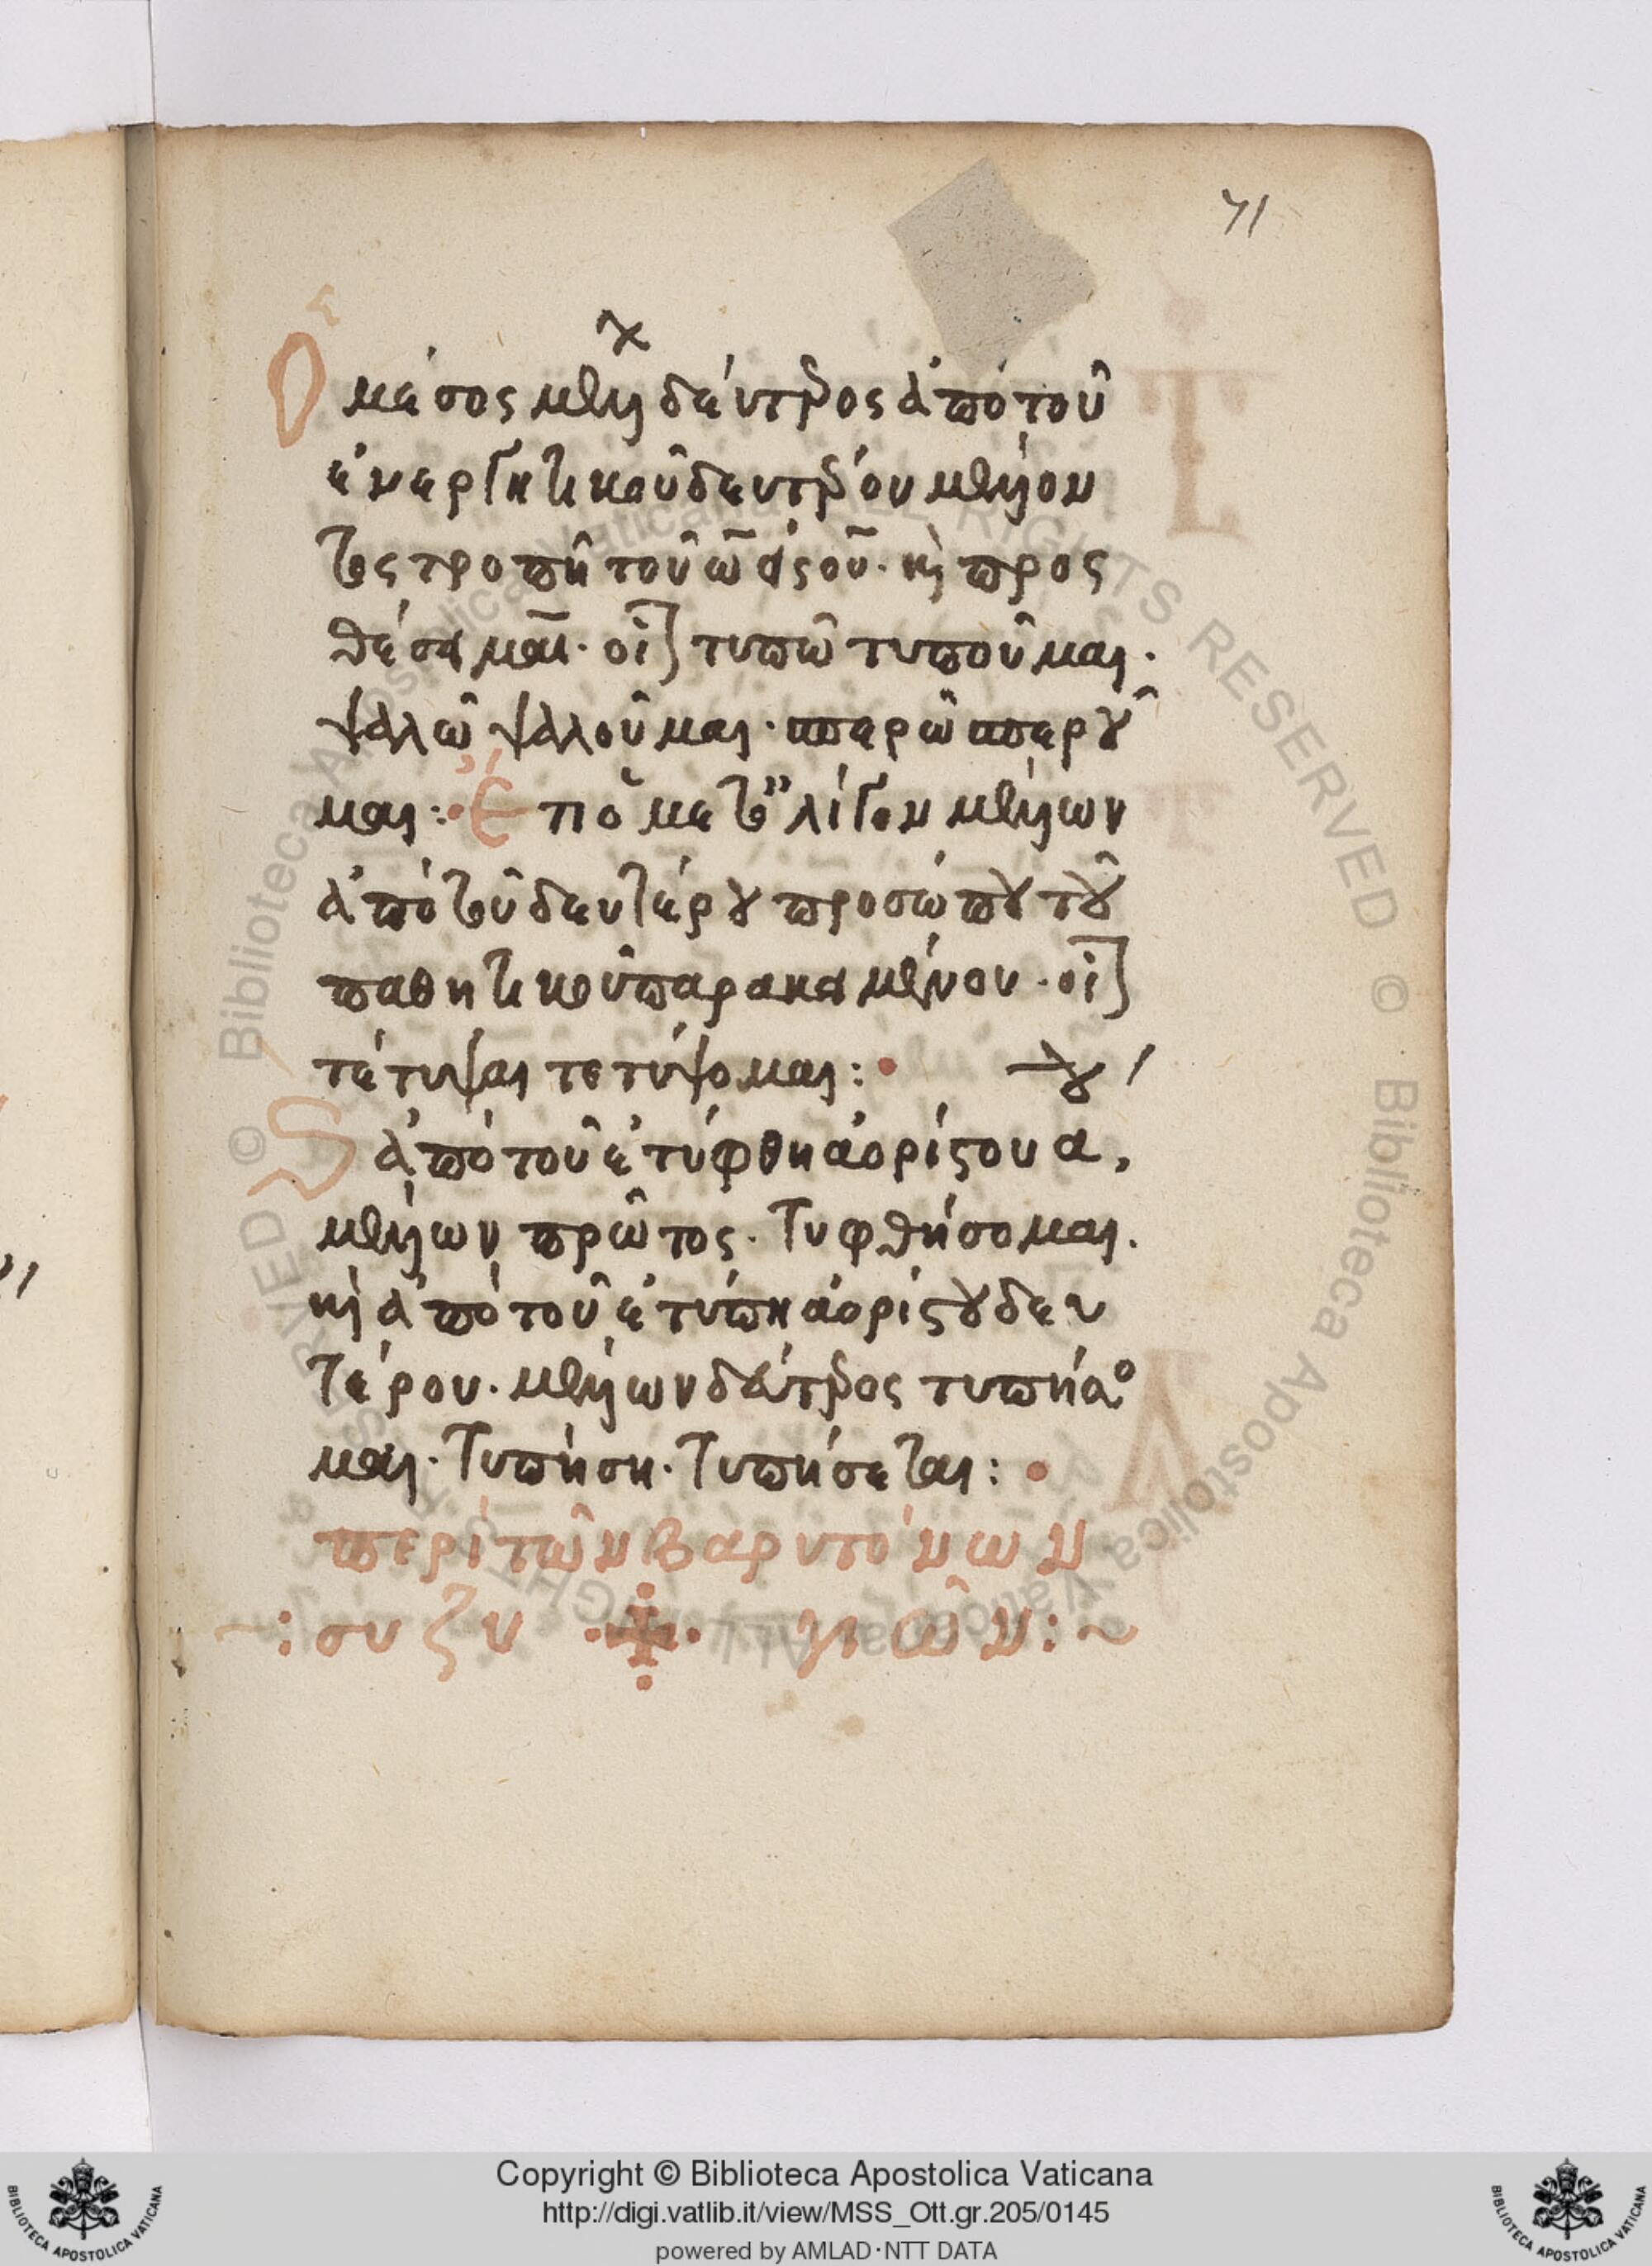 71
Ὁ μέσος μέλλ δεύτερος ἀπὸ τοῦ
ἐνεργητικοῦ δευτέρου μέλλον
τος τροπῇ τοῦ ω̄ εἰς ου̅· κὶ προς
θέσει μαι̅· οἷον τυπῶ τυποῦμαι·
ψαλῶ ψαλοῦμαι· σπερῶ σπερου
μαι: Ὁ μετ' ὀλίγον μέλλων
ἀπὸ τοῦ δευτέρου προσώπου τοῦ
παθητικοῦ παρακειμένου· οἷον
τέτυψαι τετύψομαι:
ἀπὸ τοῦ ἐτύφθη ἀορίστου α,
μέλλων πρῶτος· τυφθήσομαι.
κὶ ἀπὸ τοῦ ἐτύπη ἀορίστου δευ
τέρου· μέλλων δεύτερος τυπήσο
μαι· τυπήση· τυπήσεται:
περὶ τῶν βαρυτόνων
~: συζυ γιῶν: ~
Copyright © Biblioteca Apostolica Vaticana
http://digi.vatlib.it/view/MSS_Ott.gr.205/0145
powered by AMLAD·NTT DATA